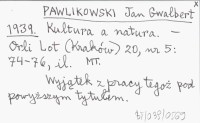 PAWLIKOWSKI Jan Gwalbert
1939. Kultura a natura. —
Orli Lot (Kraków) 20, nr 5:
74-76, il. MT.
Wyjątek z pracy tegoż pod
powyższym tytułem.